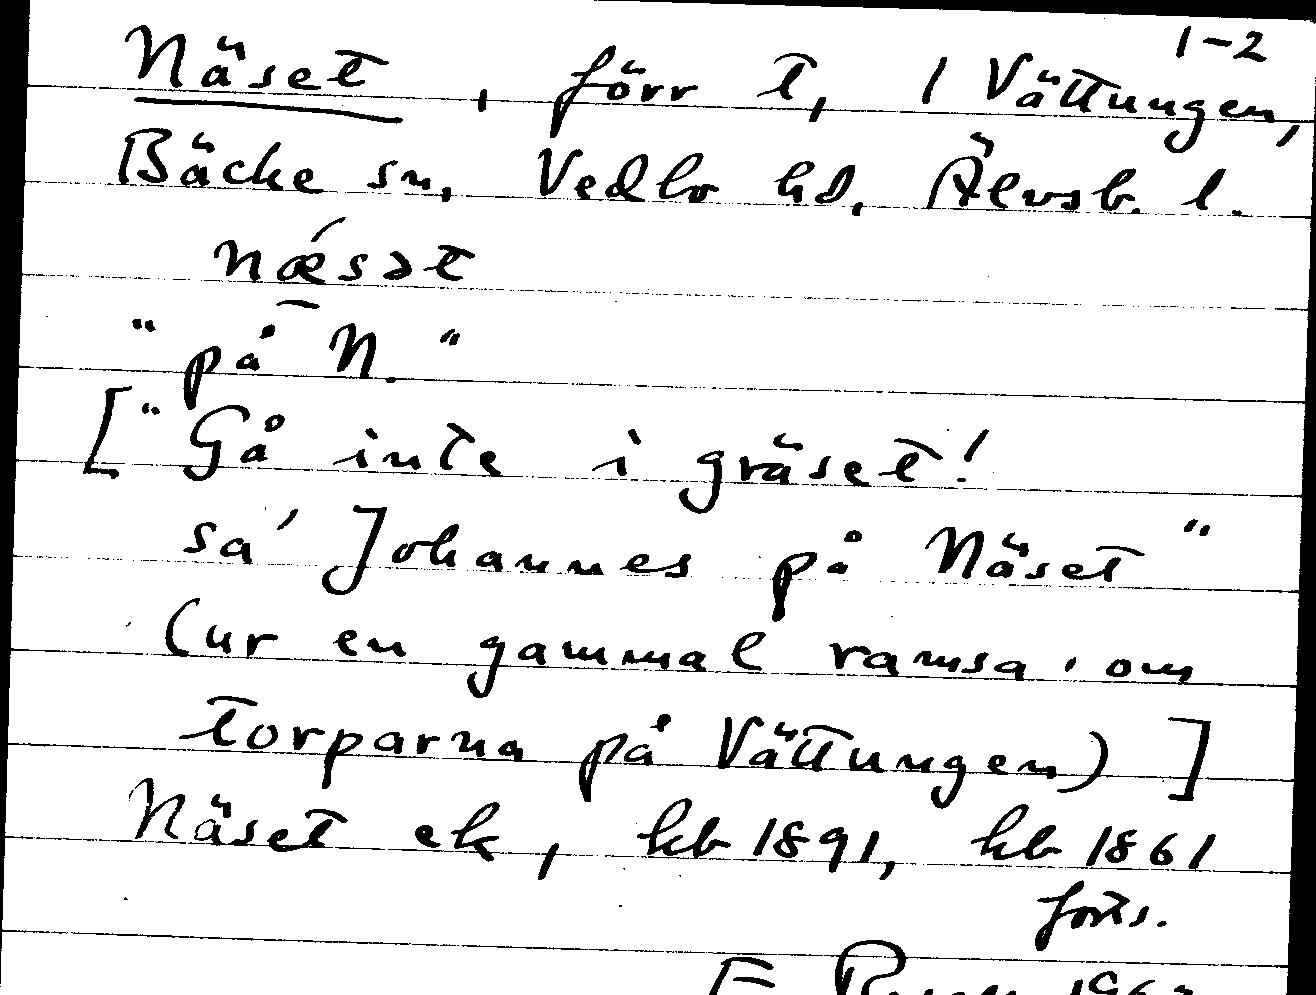 1-2
Näset, förr t, / Vättungen,
Bäcke sn, Vedbo hd, Älvsb. l.
nǽsət
"på N."
["Gå inte i gräset!
sa' Johannes på Näset"
(ur en gammal ramsa om
torparna på Vättungen)]
Näset ek, kb 1891, kb 1861
forts.